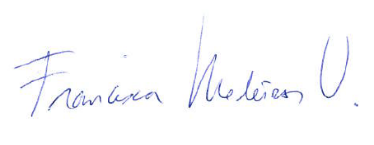 Francisca Medeiros V.